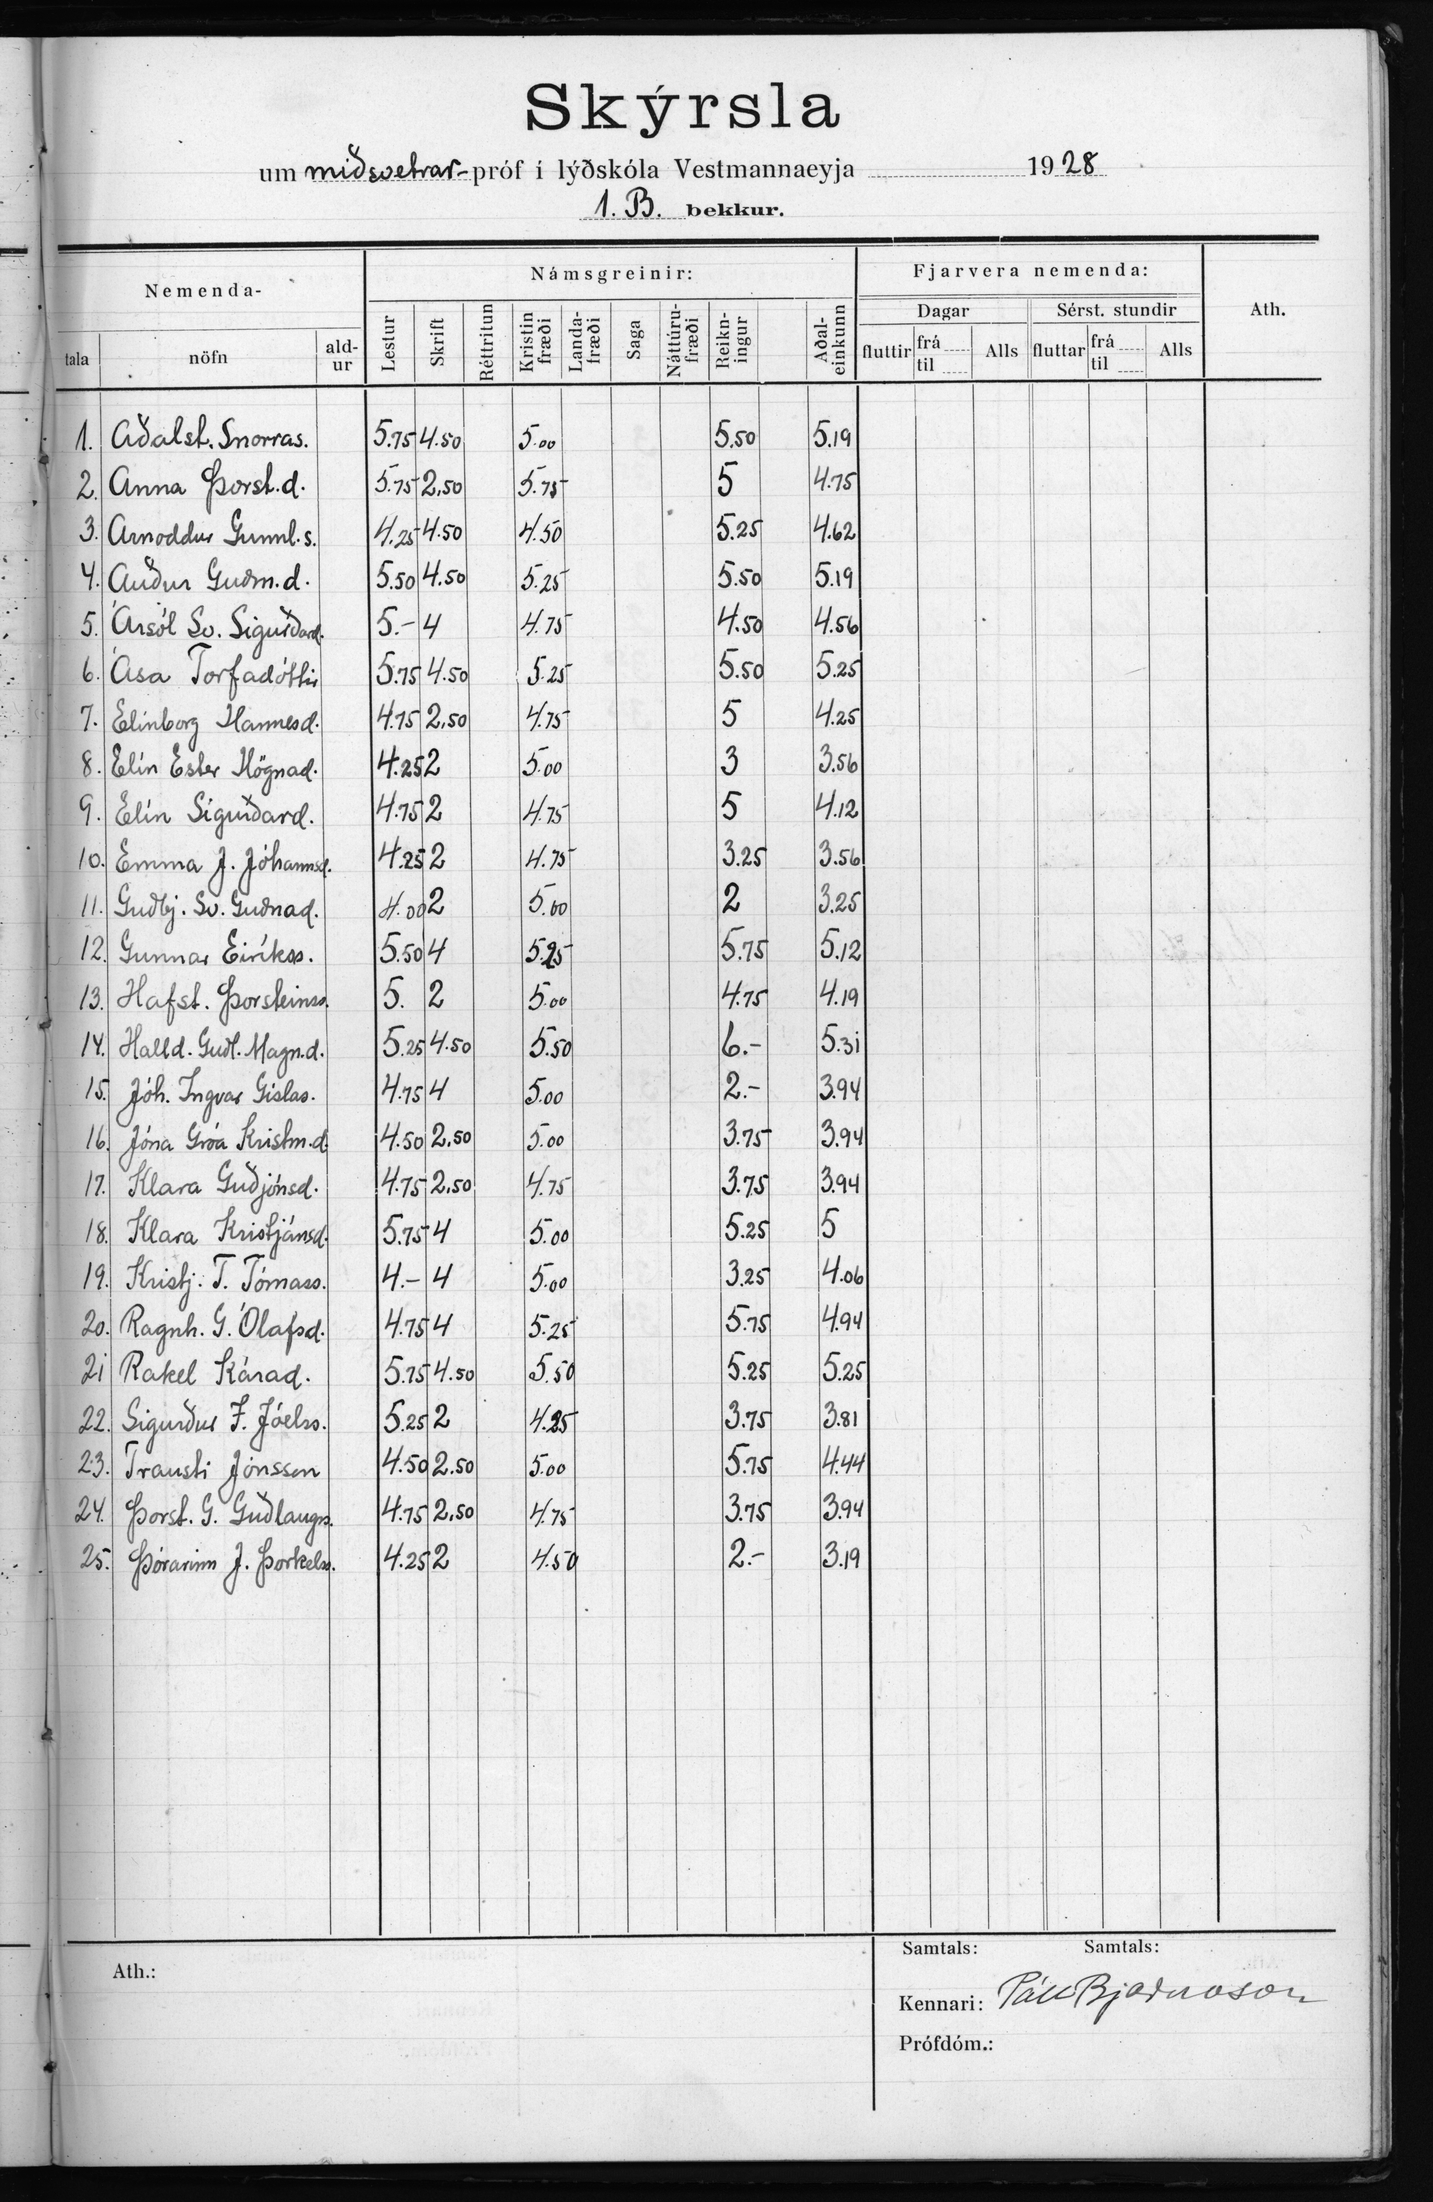 Skýrsla
um miðsvetrar-próf í lýðskóla Vestmannaeyja 1928
1. B. bekkur.
Nemenda- Námsgreinir: Fjarvera nemenda: Ath.
Dagar Sérst. stundir
tala nöfn ald-ur Lestur Skrift Réttritun Kristin fræði Landa-fræði Saga Náttúru-fræði Reikn-ingur Aðal-einkunn fluttir frá til Alls fluttar frá til Alls
1. Aðalst. Snorras. 5.75 4.50 5.00 5.50 5.19
2. Anna Þorst.d. 5.75 2.50 5.75 5 4.75
3. Arnoddur Gunnl.s. 4.25 4.50 4.50 5.25 4.62
4. Auður Guðm.d. 5.50 4.50 5.25 5.50 5.19
5. Ársól Sv. Sigurðard. 5.- 4 4.75 4.50 4.56
6. Ása Torfadóttir 5.75 4.50 5.25 5.50 5.25
7. Elínborg Hannesd. 4.75 2.50 4.75 5 4.25
8. Elín Ester Högnad. 4.25 2 5.00 3 3.56
9. Elín Sigurðard. 4.75 2 4.75 5 4.12
10. Emma J. Jóhannsd. 4.25 2 4.75 3.25 3.56
11. Guðbj. Sv. Guðnad. 4.00 2 5.00 2 3.25
12. Gunnar Eiríkss. 5.50 4 5.25 5.75 5.12
13. Hafst. Þorsteinss. 5. 2 5.00 4.75 4.19
14. Halld. Guðl. Magn.d. 5.25 4.50 5.50 6.- 5.31
15. Jóh. Ingvar Gíslas. 4.75 4 5.00 2.- 3.94
16. Jóna Gróa Kristm.d. 4.50 2.50 5.00 3.75 3.94
17. Klara Guðjónsd. 4.75 2.50 4.75 3.75 3.94
18. Klara Kristjánsd. 5.75 4 5.00 5.25 5
19. Kristj. T. Tómass. 4.- 4 5.00 3.25 4.06
20. Ragnh. G. Ólafsd. 4.75 4 5.25 5.75 4.94
21 Rakel Kárad. 5.75 4.50 5.50 5.25 5.25
22. Sigurður F. Jóelss. 5.25 2 4.25 3.75 3.81
23. Trausti Jónsson 4.50 2.50 5.00 5.75 4.44
24. Þorst. G. Guðlaugss. 4.75 2.50 4.75 3.75 3.94
25. Þórarinn J. Þorkelss. 4.25 2 4.50 2.- 3.19
Samtals: Samtals:
Ath.:
Kennari: Páll Bjarnason
Prófdóm.: